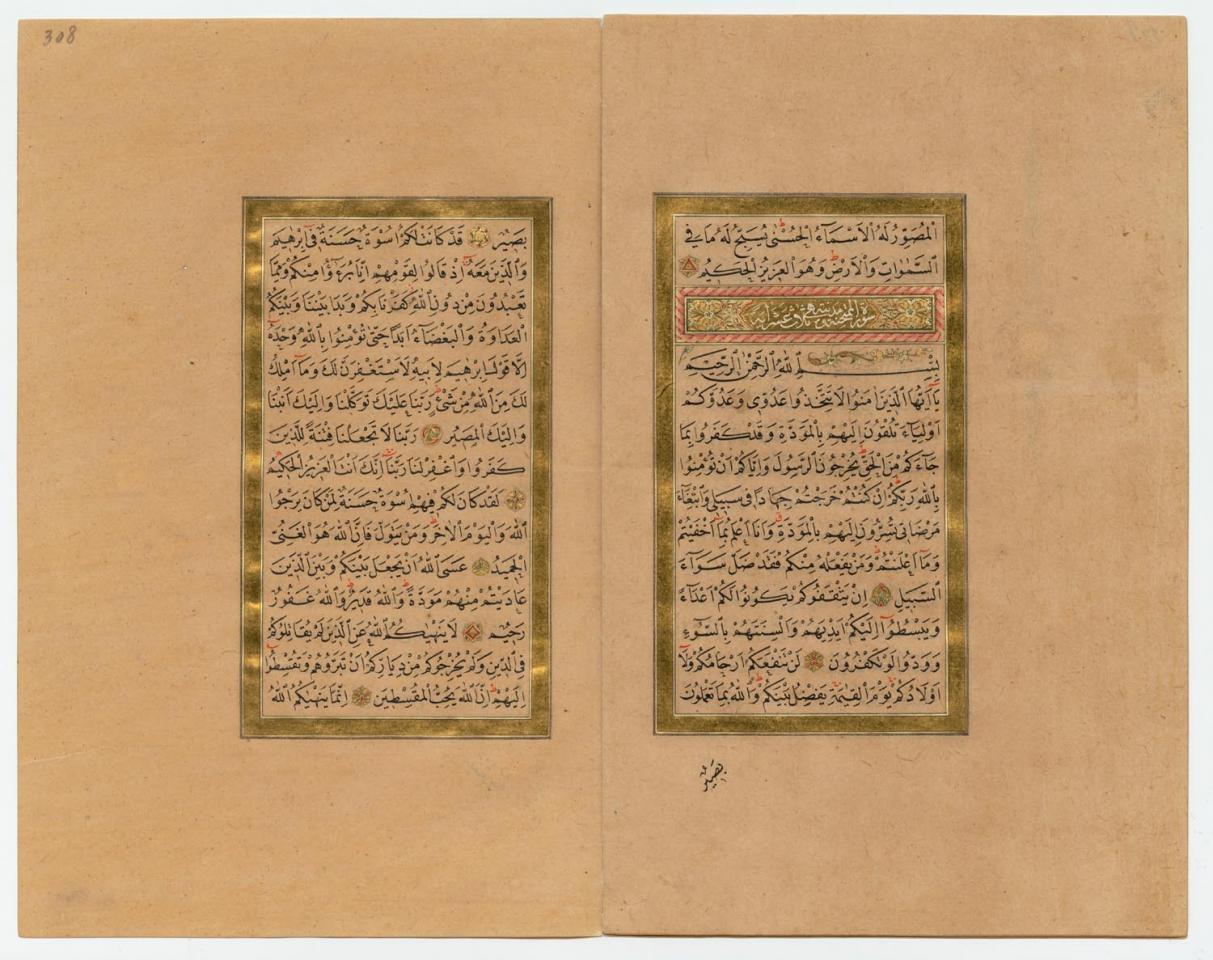 الْمُصَوِّرُ لَهُ الْاَسْمَاءُ الْحُسْنٰى يُسَبِّحُ لَهُ مَا فِى
السَّمٰوَاتِ وَالْاَرْضِ وَهُوَ الْعَزِيزُ الْحَكِيمُ
سورة الممتحنة مدنية وهى ثلاث عشر آية
بِسْمِ اللّٰهِ الرَّحْمٰنِ الرَّحِيمِ
يَآ اَيُّهَا الَّذِينَ اٰمَنُوا لَا تَتَّخِذُوا عَدُوِّى وَعَدُوَّكُمْ
اَوْلِيَآءَ تُلْقُونَ اِلَيْهِمْ بِالْمَوَدَّةِ وَقَدْ كَفَرُوا بِمَا
جَآءَكُمْ مِنَ الْحَقِّ يُخْرِجُونَ الرَّسُولَ وَاِيَّاكُمْ اَنْ تُؤْمِنُوا
بِاللّٰهِ رَبِّكُمْ اِنْ كُنْتُمْ خَرَجْتُمْ جِهَادًا فِى سَبِيلِى وَابْتِغَآءَ
مَرْضَاتِى تُسِرُّونَ اِلَيْهِمْ بِالْمَوَدَّةِ وَاَنَا اَعْلَمُ بِمَآ اَخْفَيْتُمْ
وَمَآ اَعْلَنْتُمْ وَمَنْ يَفْعَلْهُ مِنْكُمْ فَقَدْ ضَلَّ سَوَآءَ
السَّبِيلِ اِنْ يَثْقَفُوكُمْ يَكُونُوا لَكُمْ اَعْدَآءً
وَيَبْسُطُوٓا اِلَيْكُمْ اَيْدِيَهُمْ وَاَلْسِنَتَهُمْ بِالسُّٓوءِ
وَوَدُّوا لَوْ تَكْفُرُونَ لَنْ تَنْفَعَكُمْ اَرْحَامُكُمْ وَلَآ
اَوْلَادُكُمْ يَوْمَ الْقِيٰمَةِ يَفْصِلُ بَيْنَكُمْ وَاللّٰهُ بِمَا تَعْمَلُونَ
بَصِيرٌ
308
بَصِيرٌ قَدْ كَانَتْ لَكُمْ اُسْوَةٌ حَسَنَةٌ فِٓى اِبْرٰهِيمَ
وَالَّذِينَ مَعَهُ اِذْ قَالُوا لِقَوْمِهِمْ اِنَّا بُرَءٰٓؤُا مِنْكُمْ وَمِمَّا
تَعْبُدُونَ مِنْ دُونِ اللّٰهِ كَفَرْنَا بِكُمْ وَبَدَا بَيْنَنَا وَبَيْنَكُمُ
الْعَدَاوَةُ وَالْبَغْضَآءُ اَبَدًا حَتّٰى تُؤْمِنُوا بِاللّٰهِ وَحْدَهُٓ
اِلَّا قَوْلَ اِبْرٰهِيمَ لِاَبِيهِ لَاَسْتَغْفِرَنَّ لَكَ وَمَآ اَمْلِكُ
لَكَ مِنَ اللّٰهِ مِنْ شَىْءٍ رَبَّنَا عَلَيْكَ تَوَكَّلْنَا وَاِلَيْكَ اَنَبْنَا
وَاِلَيْكَ الْمَصِيرُ رَبَّنَا لَا تَجْعَلْنَا فِتْنَةً لِلَّذِينَ
كَفَرُوا وَاغْفِرْ لَنَا رَبَّنَا اِنَّكَ اَنْتَ الْعَزِيزُ الْحَكِيمُ
لَقَدْ كَانَ لَكُمْ فِيهِمْ اُسْوَةٌ حَسَنَةٌ لِمَنْ كَانَ يَرْجُوا
اللّٰهَ وَالْيَوْمَ الْاٰخِرَ وَمَنْ يَتَوَلَّ فَاِنَّ اللّٰهَ هُوَ الْغَنِىُّ
الْحَمِيدُ عَسَى اللّٰهُ اَنْ يَجْعَلَ بَيْنَكُمْ وَبَيْنَ الَّذِينَ
عَادَيْتُمْ مِنْهُمْ مَوَدَّةً وَاللّٰهُ قَدِيرٌ وَاللّٰهُ غَفُورٌ
رَحِيمٌ لَا يَنْهٰيكُمُ اللّٰهُ عَنِ الَّذِينَ لَمْ يُقَاتِلُوكُمْ
فِى الدِّينِ وَلَمْ يُخْرِجُوكُمْ مِنْ دِيَارِكُمْ اَنْ تَبَرُّوهُمْ وَتُقْسِطُوٓا
اِلَيْهِمْ اِنَّ اللّٰهَ يُحِبُّ الْمُقْسِطِينَ اِنَّمَا يَنْهٰيكُمُ اللّٰهُ